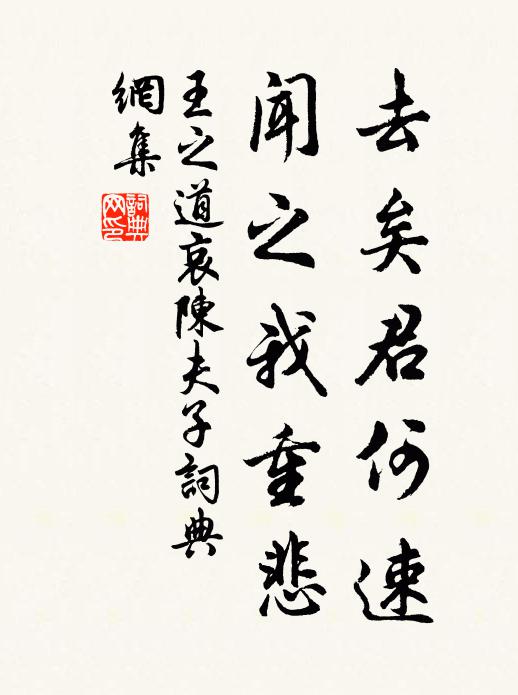 去矣君何速
聞之我重悲
王之道哀陳夫子詞典
網集
詞典
网印